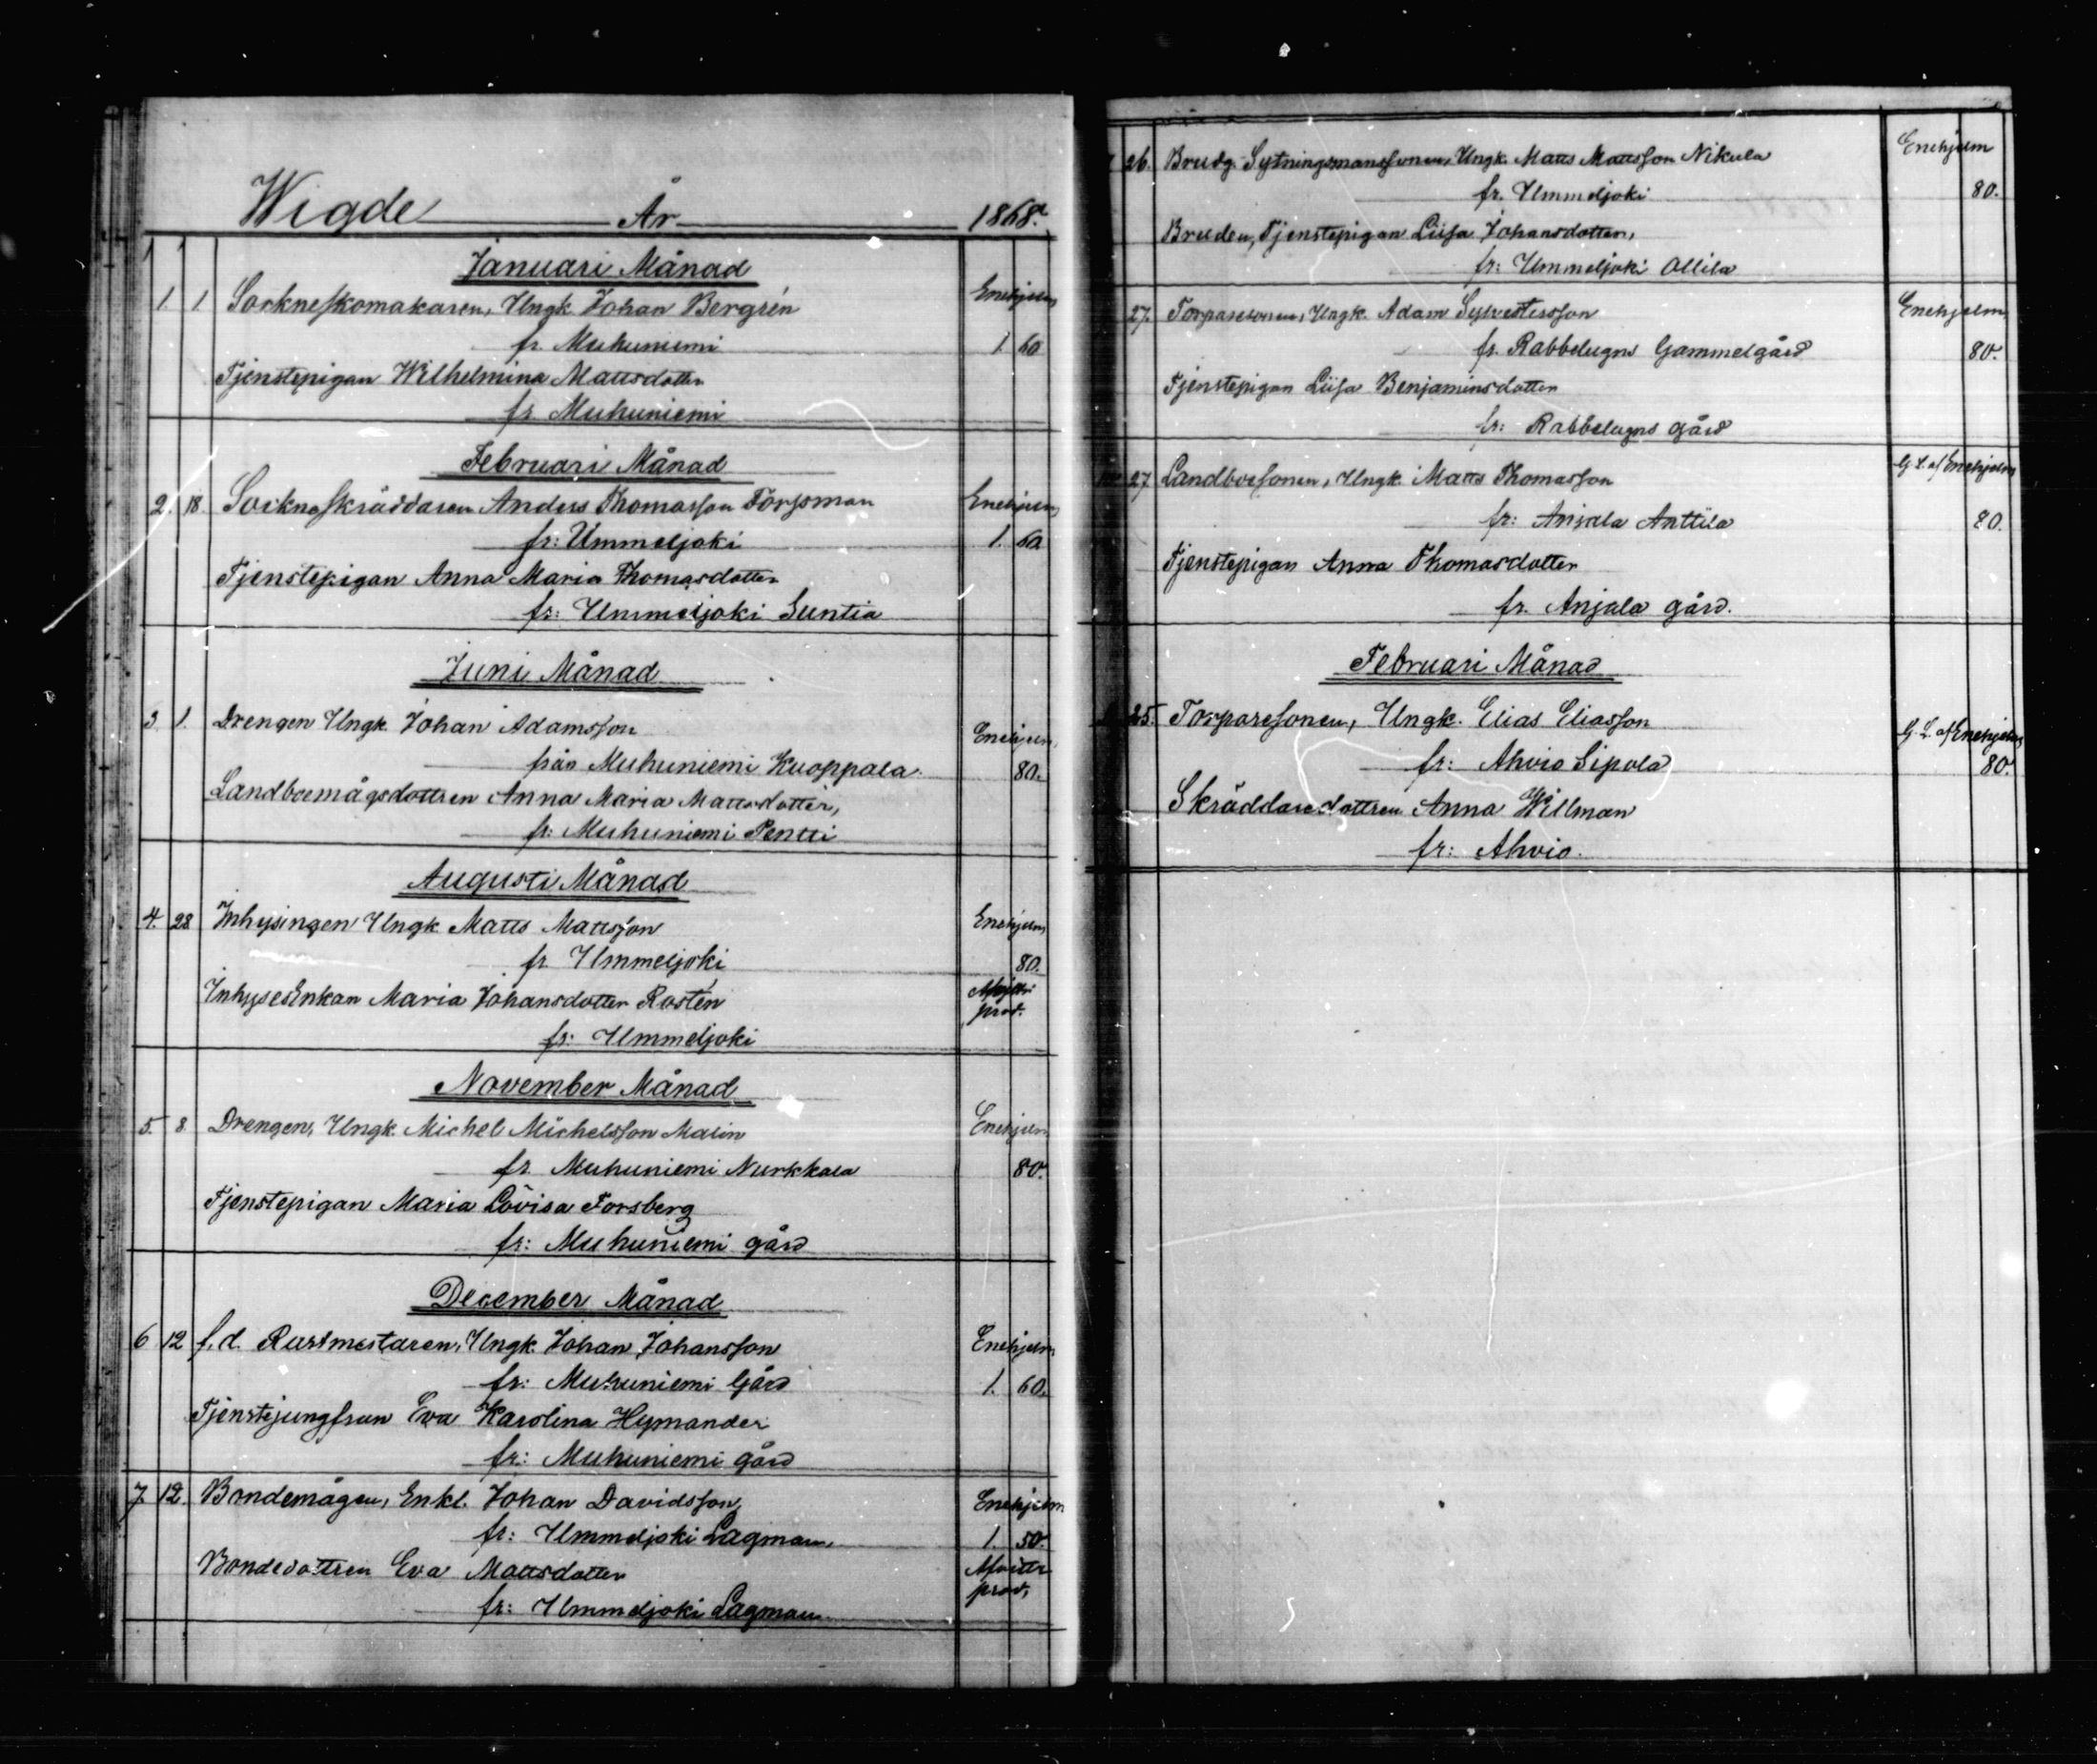 Wigde År 1868.
Januari Månad
1. 1 Sockneskomakaren, Ungk. Johan Bergrén Enehjelm
fr. Muhuniemi 1. 60
Tjenstepigan Wilhelmina Mattsdotter
fr. Muhuniemi
Februari Månad
2. 18. Sockneskräddaren Anders Thomasson Forssman Enehjelm
fr: Ummeljoki 1. 60
Tjenstepigan Anna Maria Thomasdotter
fr: Ummeljoki Suntia
Juni Månad
3. 1. Drengen Ungk. Johan Adamsson Enehjelm
från Muhuniemi Kuoppala. 80.
Landboemågsdottren Anna Maria Mattsdotter,
fr: Muhuniemi Pentti
Augusti Månad
4. 28 Inhysingen Ungk Matts Mattsson Enehjelm
fr. Ummeljoki 80.
Inhysesenkan Maria Johansdotter Rostén
prod.
fr: Ummeljoki
November Månad
5. 8. Drengen, Ungk. Michel Michelsson Malin Enehjelm
fr. Muhuniemi Nurkkala 80.
Tjenstepigan Maria Lovisa Forsberg
fr: Muhuniemi gård
December Månad
6 12 f.d. Rustmestaren, Ungk. Johan Johansson Enehjelm
fr: Muhuniemi Gård 1. 60.
Tjenstejungfrun Eva Karolina Hymander
fr: Muhuniemi gård
7. 12. Bondemågen, Enkl. Johan Davidsson, Enehjelm
fr: Ummeljoki Lagman, 1. 50.
Bondedottren Eva Mattsdotter Afvitter
prod,
fr: Ummeljoki Lagman
26. Brudg. Sytningsmanssonen, Ungk. Matts Mattsson Nikula Enehjelm
fr. Ummeljoki 80.
Bruden, Tjenstepigan Liisa Johansdotter,
fr: Ummeljoki Ollila
27. Torparesonen, Ungk. Adam Sylvestersson Enehjelm
fr. Rabbelugns Gammelgård 80.
Tjenstepigan Liisa Benjaminsdotter
fr: Rabbelugns gård
27 Landboesonen, Ungk. Matts Thomasson G. L. af Enehjelm
fr: Anjala Anttila 80.
Tjenstepigan Anna Thomasdotter
fr. Anjala gård.
Februari Månad
25. Torparesonen, Ungk. Elias Eliasson G. L. af Enehjelm
fr: Ahvio Sipola 80.
Skräddaredottren Anna Willman
fr: Ahvio.